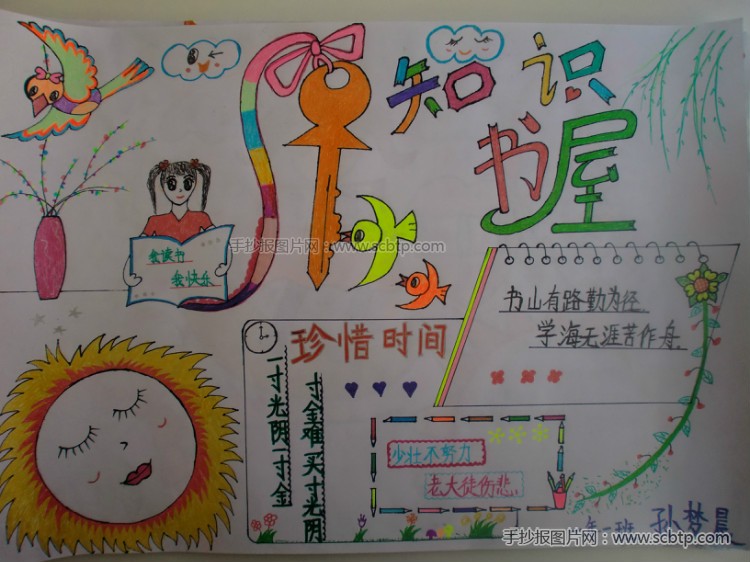 知识
书屋
我读书
我快乐
手抄报图片网:www.scbtp.com
书山有路勤为径
学海无涯苦作舟
珍惜时间
一寸光阴一寸金
寸金难买寸光阴
少壮不努力
老大徒伤悲
年一班 孙梦晨
手抄报图片网:www.scbtp.com